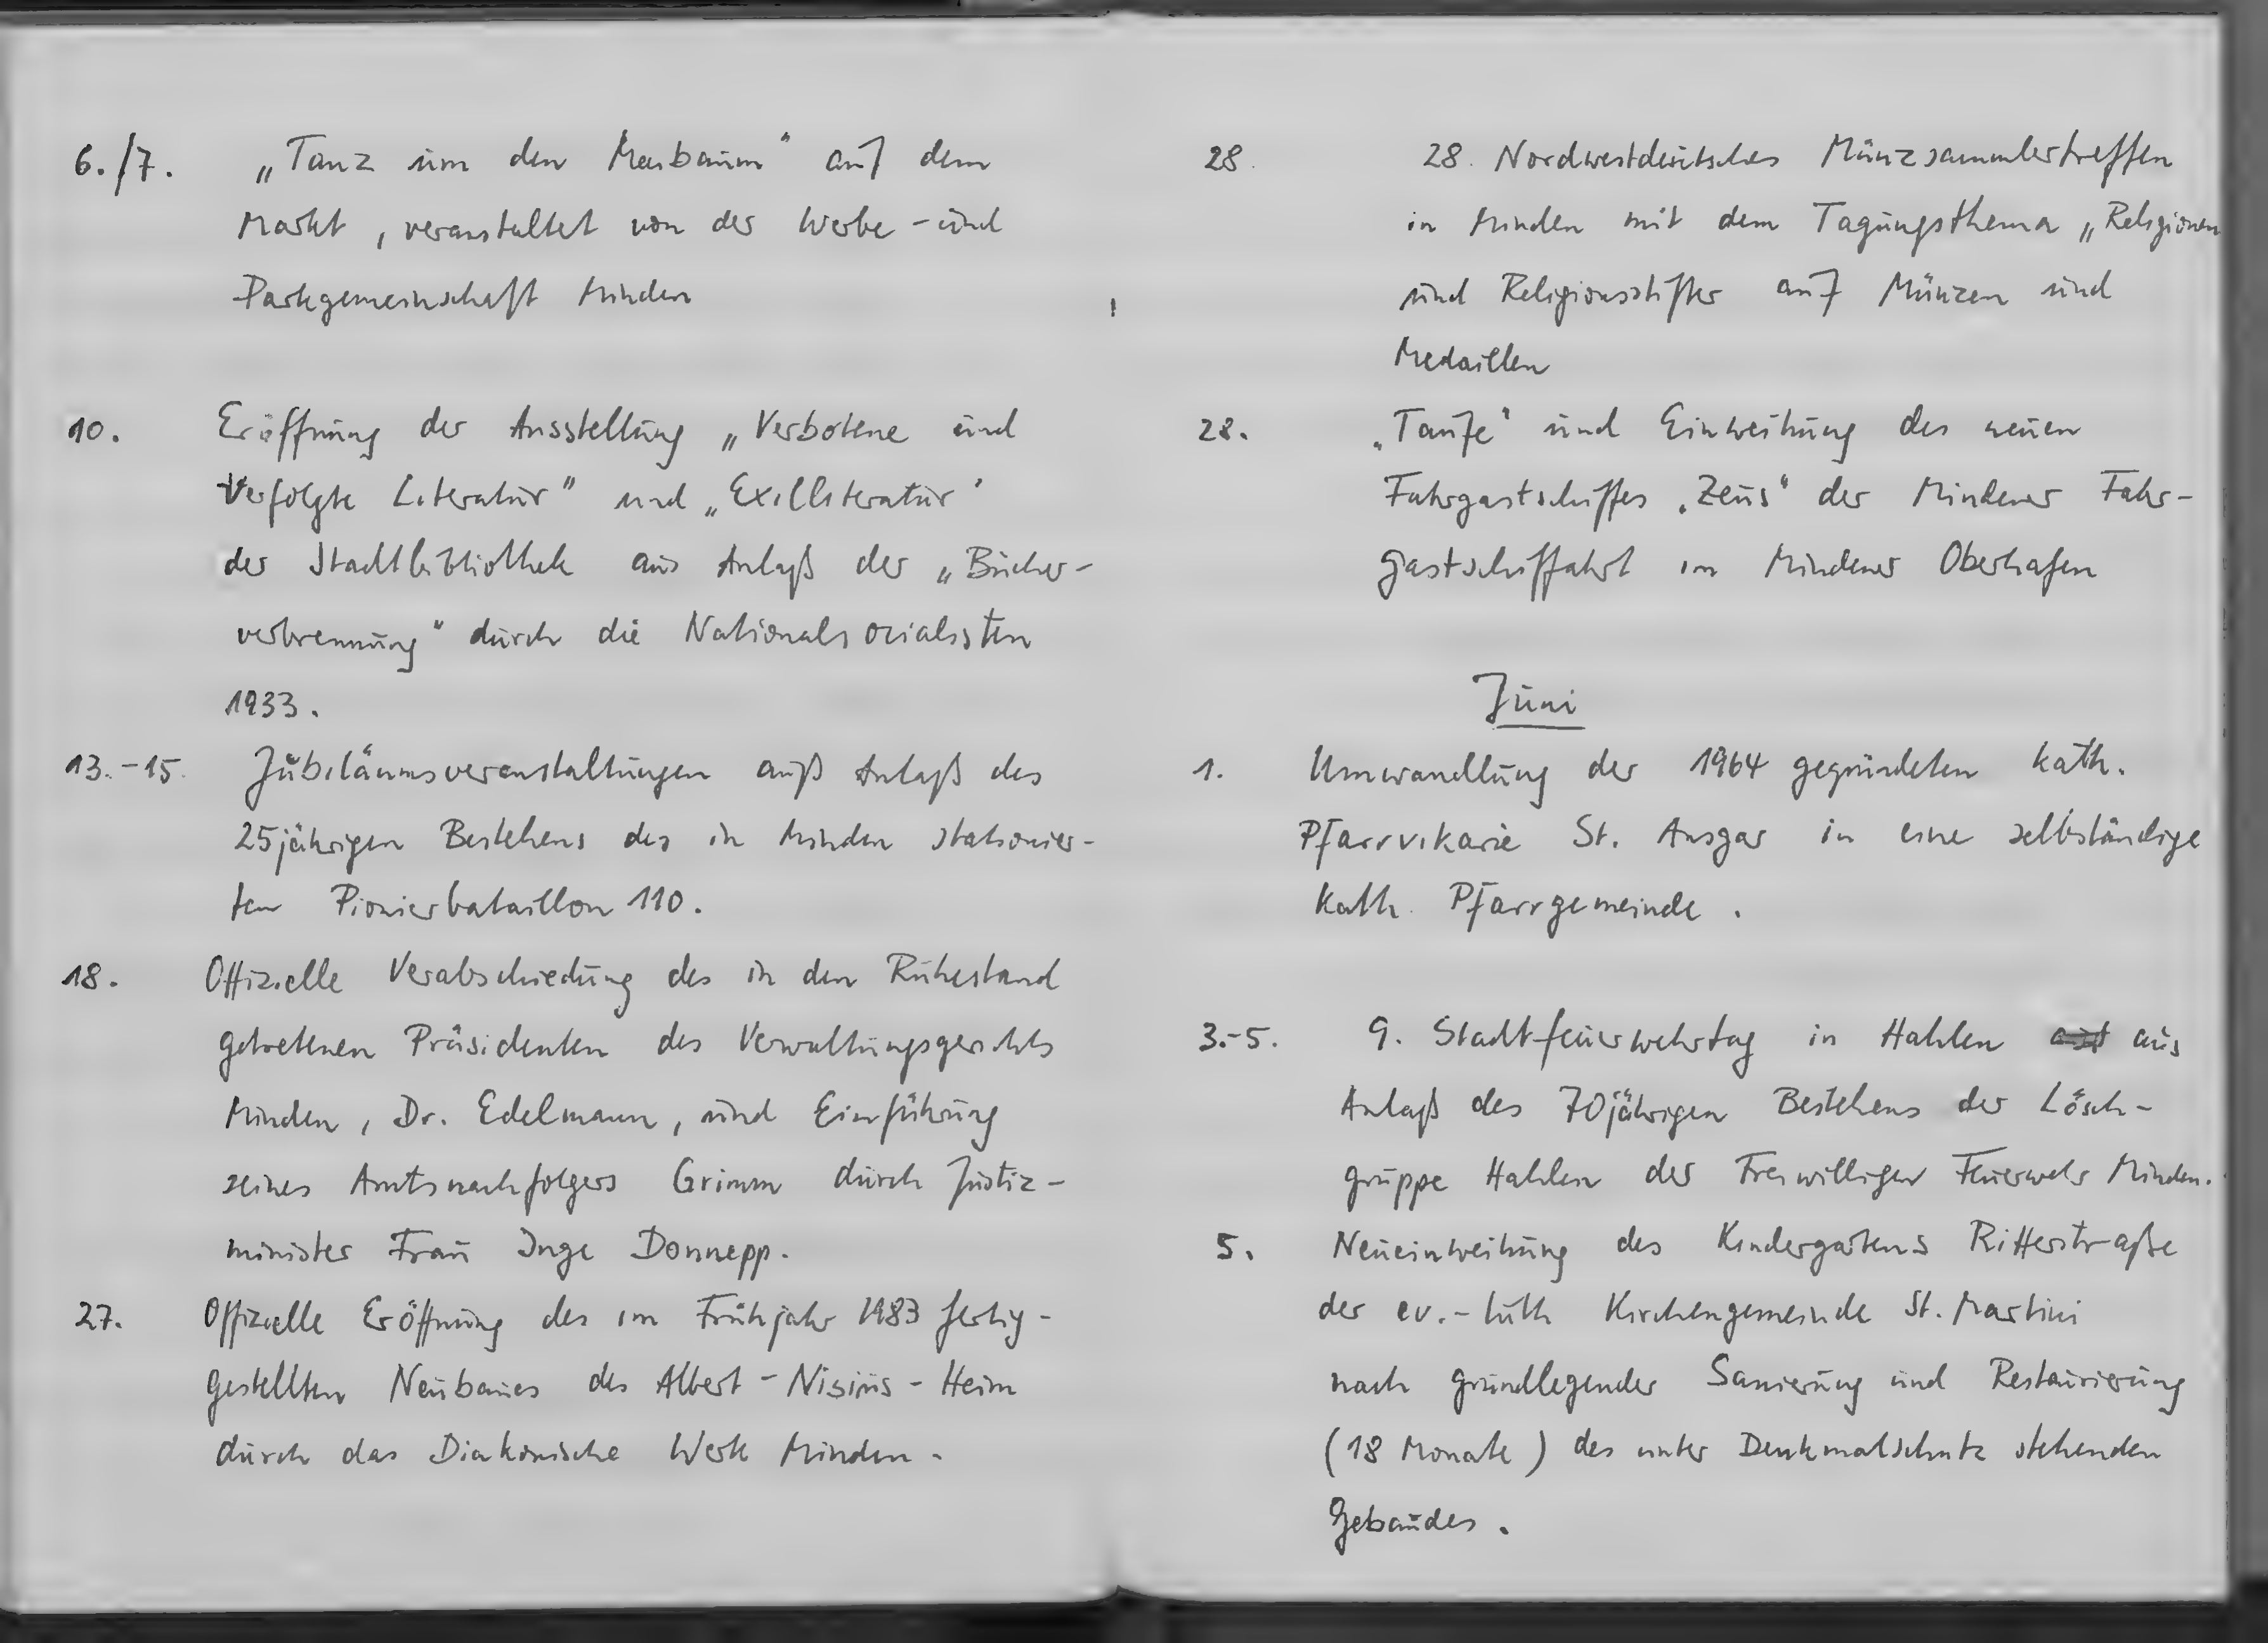 6./7. „Tanz um den Maibaum" auf dem
Markt, veranstaltet von der Werbe- und
Parkgemeinschaft Minden
10. Eröffnung der Ausstellung „Verbotene und
Verfolgte Literatur" und „Exilliteratur"
der Stadtbibliothek aus Anlaß der „Bücher-
verbrennung" durch die Nationalsozialisten
1933.
13.-15. Jubiläumsveranstaltungen auß Anlaß des
25jährigen Bestehens des in Minden stationier-
ten Pionierbataillon 110.
18. Offizielle Verabschiedung des in den Ruhestand
getretenen Präsidenten des Verwaltungsgerichts
Minden, Dr. Edelmann, und Einführung
seines Amtsnachfolgers Grimm durch Justiz-
minister Frau Inge Donnepp.
27. Offizielle Eröffnung des im Frühjahr 1983 fertig-
gestellten Neubaues des Albert-Nisius-Heim
durch das Diakonische Werk Minden.
28. 28. Nordwestdeutsches Münzsammlertreffen
in Minden mit dem Tagungsthema „Religionen
und Religionsstifter auf Münzen und
Medaillen
28. „Taufe" und Einweihung des neuen
Fahrgastschiffes „Zeus" der Mindener Fahr-
gastschiffahrt im Mindener Oberhafen
Juni
1. Umwandlung der 1964 gegründeten kath.
Pfarrvikarie St. Ansgar in eine selbständige
kath. Pfarrgemeinde.
3.-5. 9. Stadtfeuerwehrtag in Hahlen aus
Anlaß des 70jährigen Bestehens der Lösch-
gruppe Hahlen der Freiwilligen Feuerwehr Minden.
5. Neueinweihung des Kindergartens Ritterstraße
der ev.-luth Kirchengemeinde St. Martini
nach grundlegender Sanierung und Restaurierung
(18 Monate) des unter Denkmalschutz stehenden
Gebäudes.